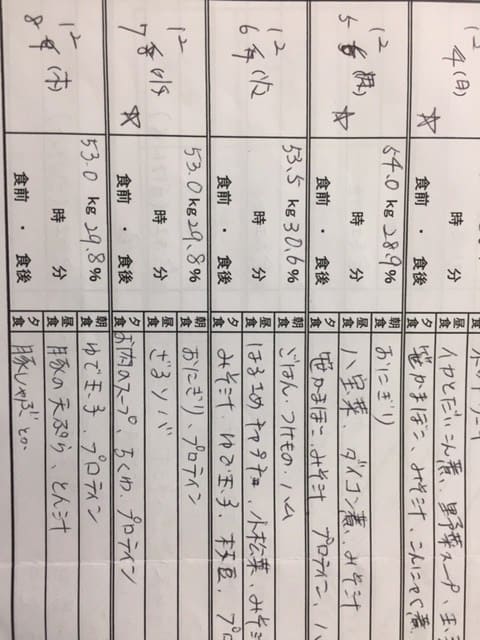 12
4(日)
☆
時 分
食前 ・ 食後
昼食 イカとだいこん煮、野菜スープ、玉
夕食 笹かまぼこ、みそ汁、こんにゃく煮
12
5
☆
54.0 kg 28.9%
時 分
食前 ・ 食後
朝食 おにぎり
昼食 八宝菜、ダイコン煮、みそ汁
夕食 笹かまぼこ、みそ汁、プロティン、ハ
12
6
53.5 kg 30.6%
時 分
食前 ・ 食後
朝食 ごはん、つけもの、ハム
昼食 はるさめ 小松菜、みそ
夕食 みそ汁、ゆで玉子、枝豆、プロ
12
7
☆
53.0 kg 29.8%
時 分
食前 ・ 食後
朝食 おにぎり、プロティン
昼食 ざるソバ
夕食 お肉スープ、ちくわ、プロティン
12
8 (木)
53.0 kg 29.8%
時 分
食前 ・ 食後
朝食 ゆで玉子、プロティン
昼食 豚の天ぷら、とん汁
夕食 豚しゃぶ